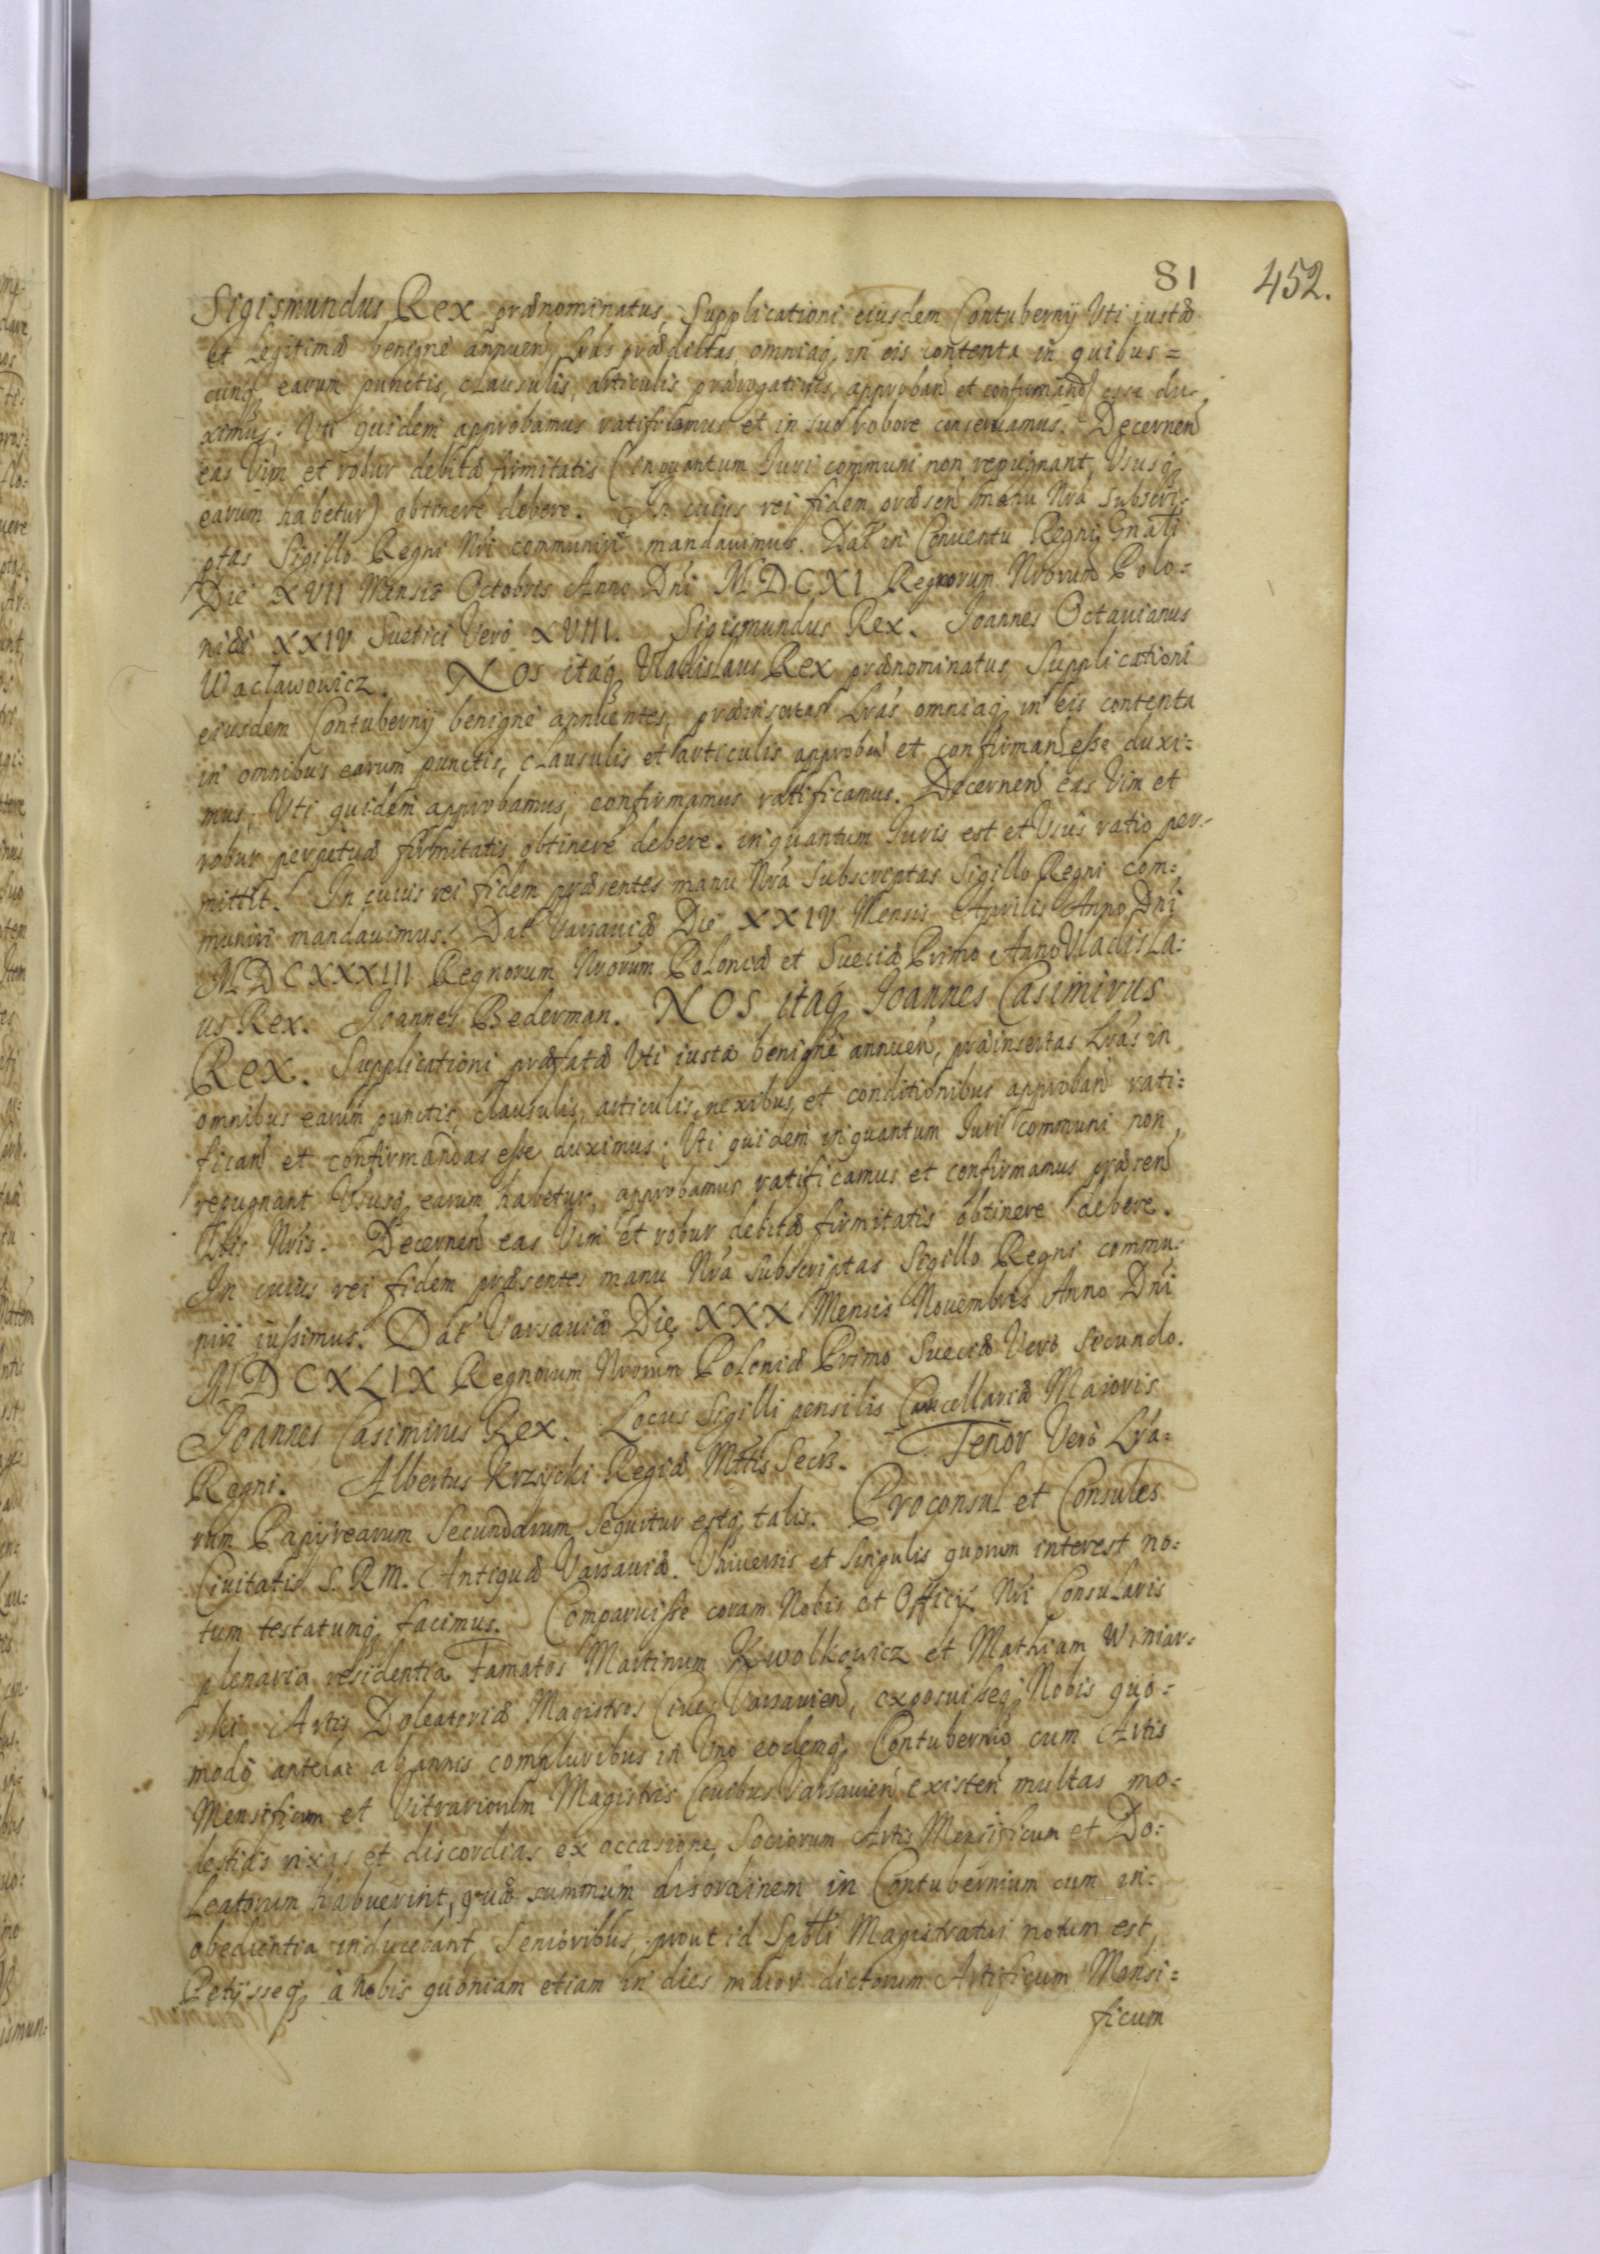 81 452.
Sigismundus Rex prænominatus, Supplicationi eiusdem Contubernij Uti iustæ
et Legitimæ benignè annuen, Lrãs prædictas omniaq in eis contenta in quibus=
cunq earum punctis, clausulis, articulis prærogativis, approban et confirmand esse du=
ximus. Uti quidem approbamus ratificamus et in suo robore conseruamus. Decernen
eas Vim et robur debitæ firmitatis (inquantum Iuri communi non repugnant, Ususq
earum habetur) obtinere debere. In cuius rei fidem præsen manu Nrã subscri=
ptas Sigillo Regni Nri communiri mandauimus. Dat in Conuentu Regni Gnali
Die XVII Mensis Octobris Anno Dni MDCXI Regnorum Nrorum Polo=
niæ XXIV Suetici Verò XVIII. Sigismundus Rex. Joannes Octauianus
Waclawowicz. NOS itaq Vladislaus Rex prænominatus Supplicationi
eiusdem Contubernij benignè annuentes, præinsertas Lrãs omniaq in eis contenta
in omnibus earum punctis, clausulis et articulis approban et confirman esse duxi=
mus, Uti quidem approbamus, confirmamus ratificamus. Decernen eas Vim et
robur perpetuæ firmitatis obtinere debere. inquantum Iuris est et Usus ratio per=
mittit. In cuius rei fidem præsentes manu Nrã Subscriptas Sigillo Regni com=
muniri mandauimus. Dat Varsauiæ Die XXIV Mensis Aprilis Anno Dni
MDCXXXIII Regnorum Nrorum Poloniæ et Sueciæ Primo Anno Vladisla=
us Rex. Joannes Bederman. NOS itaq Joannes Casimirus
Rex. Supplicationi præfatæ Uti iustæ benignè annuen, præinsertas Lrãs in
omnibus earum punctis, clausulis, articulis, nexibus, et conditionibus approban rati=
fican et confirmandas esse duximus; Uti quidem inquantum Iuri communi non
repugnant Ususq earum habetur, approbamus ratificamus et confirmamus præsen
Lris Nris. Decernen eas Vim et robur debitæ firmitatis obtinere debere.
In cuius rei fidem præsentes manu Nrã subscriptas Sigillo Regni commu=
niri iussimus. Dat Varsauiæ Die XXX Mensis Nouembris Anno Dni
MDCXLIX Regnorum Nrorum Poloniæ Primo Sueciæ Verò Secundo.
Joannes Casimirus Rex. Locus Sigilli pensilis Cancellariæ Maioris
Regni. Albertus Krzycki Regiæ Mttis Secrs. Tenor Verò Lrã=
rum Papyrearum Secundarum sequitur estq talis. Proconsul et Consules
Ciuitatis S. R M. Antiquæ Varsauiæ. Uniuersis et Singulis quorum interest no=
tum testatumq facimus. Comparuisse coram Nobis et Officij Nri Consularis
plenaria residentia Famatos Martinum Kwolkowicz et Mathiam Winiar=
ski Artis Doleatoriæ Magistros Ciues Varsauien, exposuisseq Nobis quo=
modò antelac ab annis compluribus in Uno eodemq Contubernio cum Artis
Mensificum et Vitrariorum Magistris Ciuibus Varsauien existen multas mo=
lestias rixas et discordias ex occasione Sociorum Artis Mensificum et Do=
leatorum habuerint, quæ summum disordinem in Contubernium cum in=
obedientia inducebant, Senioribus, prout id Spbli Magistratui notum est,
Petijsseq à nobis quoniam etiam in dies maior dictorum Artificum Mensi=
ficum